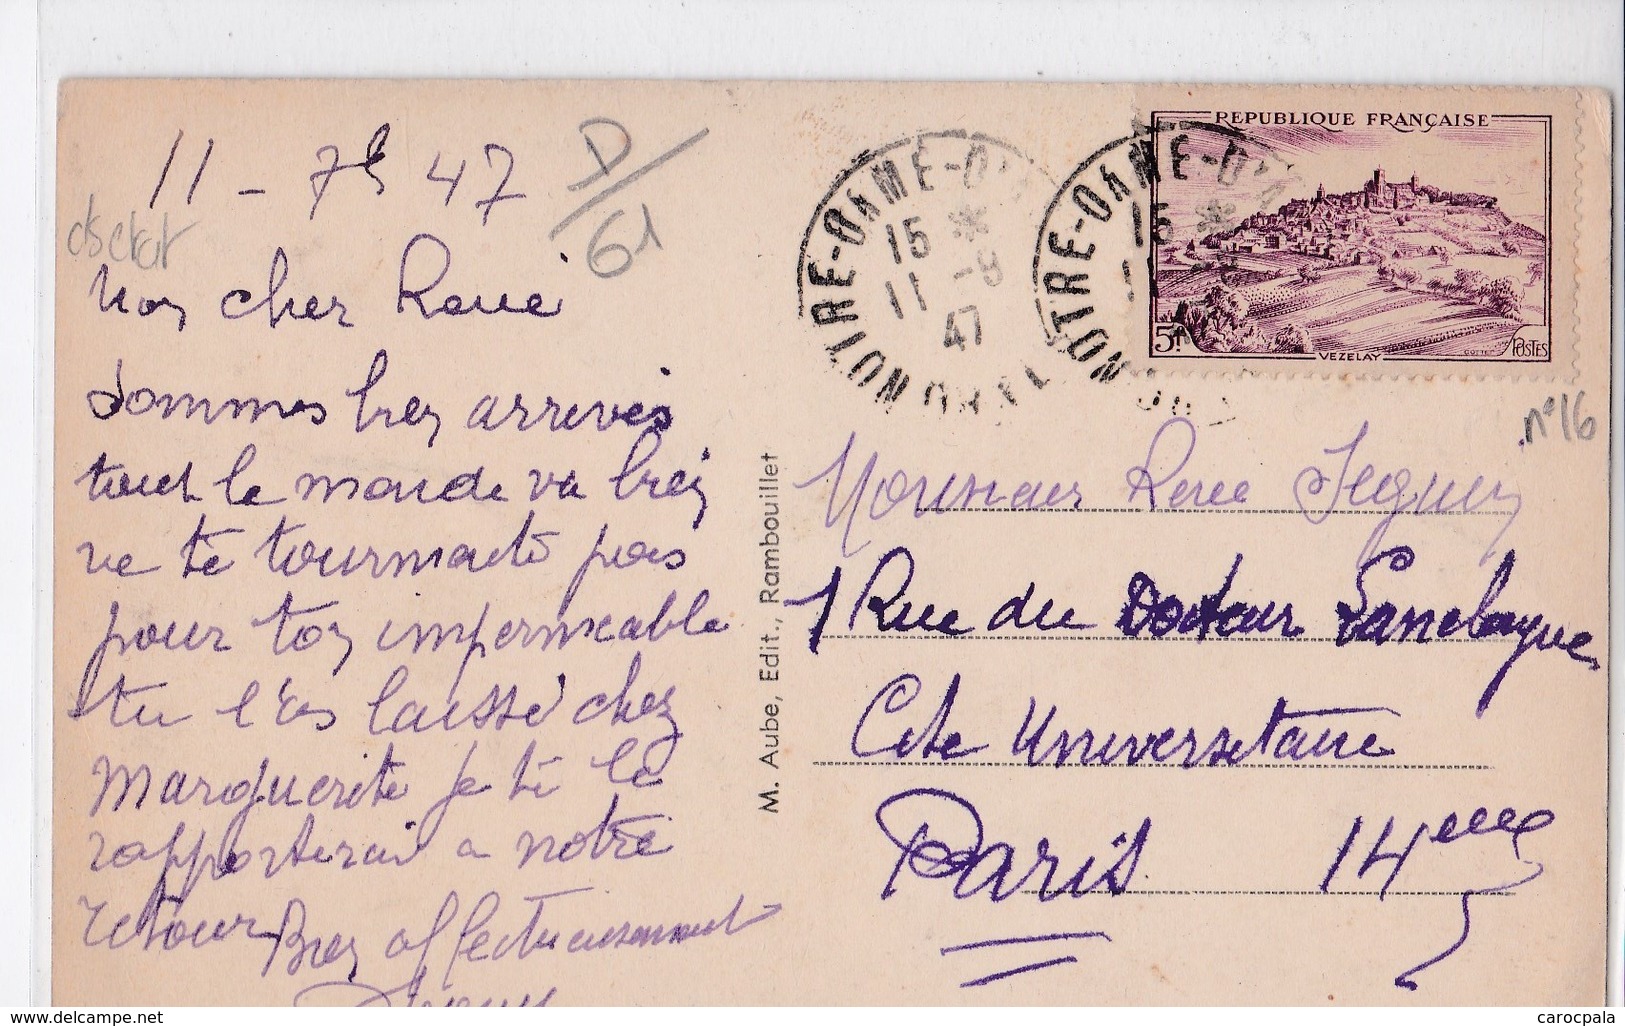 11 - 7b 47
D/61
Mon cher René
sommes bien arrivés
tout le monde va bien
ne te tourmente pas
pour ton imperméable
tu l'as laissé chez
Marguerite je te le
rapporterai a notre
retour Bien affectueusement
M. Aube, Edit., Rambouillet
NOTRE-DAME-D'
15 *
11 -9
47
NOTRE-DAME-D'
15 *
REPUBLIQUE FRANÇAISE
5f
VEZELAY
POSTES
n°16
Monsieur René Seguin
1 Rue du Docteur Lannelongue
Cité Universitaire
Paris 14eme
www.delcampe.net
carocpala